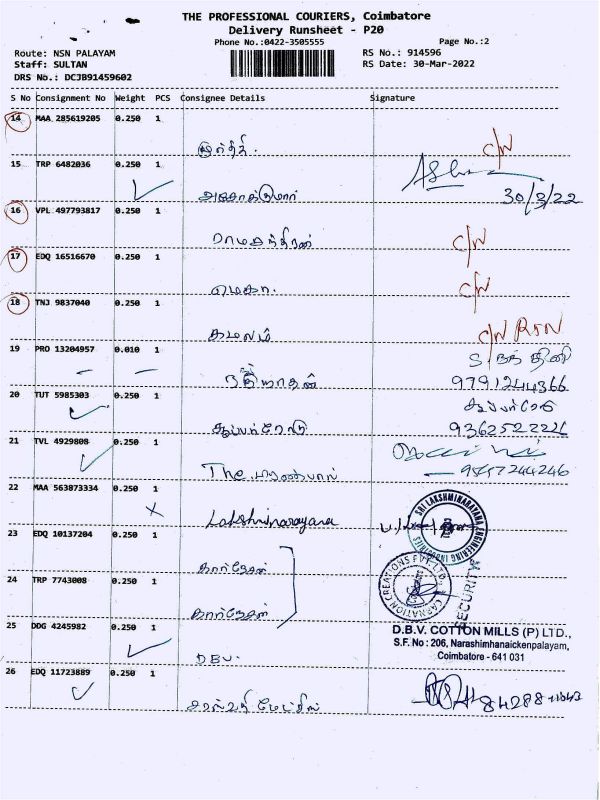 THE PROFESSIONAL COURIERS, Coimbatore
Delivery Runsheet - P20
Phone No.:0422-3505555
Page No.:2
Route: NSN PALAYAM
RS No.: 914596
Staff: SULTAN
RS Date: 30-Mar-2022
DRS No.: DCJB91459602
S No Consignment No Weight PCS Consignee Details Signature
14 MAA 285619205 0.250 1
மூர்த்தி. C/N
15 TRP 6482036 0.250 1
அசோக்குமார் 30/3/22
16 VPL 497793817 0.250 1
ராமசந்திரன் C/N
17 EDQ 16516670 0.250 1
மேகா. C/N
18 TNJ 9837040 0.250 1
கமலம் C/N RTN
19 PRO 13204957 0.010 1
9791244366
20 TUT 5985303 0.250 1
9362522226
21 TVL 4929808 0.250 1
The
22 MAA 563873334 0.250 1
Lakshminarayana
SRI LAKSHMINARAYANA ENGINEERING INDUSTRIES
23 EDQ 10137204 0.250 1
CARNATION CREATIONS PVT. LTD.
SECURITY
24 TRP 7743008 0.250 1
25 DDG 4245982 0.250 1
D.B.V. COTTON MILLS (P) LTD.,
S.F. No : 206, Narashimhanaickenpalayam,
Coimbatore - 641 031
DBV.
26 EDQ 11723889 0.250 1